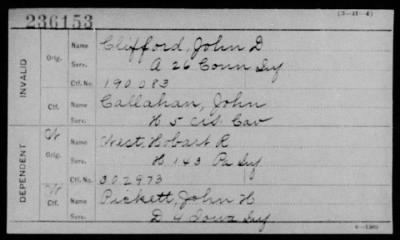 236153
(3-11-4)
INVALID
Orig.
Name Clifford, John D
Serv. A 26 Conn Inf
Ctf. No. 190083
Ctf.
Name Callahan, John
Serv. H 5 US Cav
DEPENDENT
W
Orig.
Name West, Hobart R
Serv. H 143 Pa Inf
Ctf. No. 302973
W
Ctf.
Name Pickett, John H
Serv. D 4 Iowa Inf